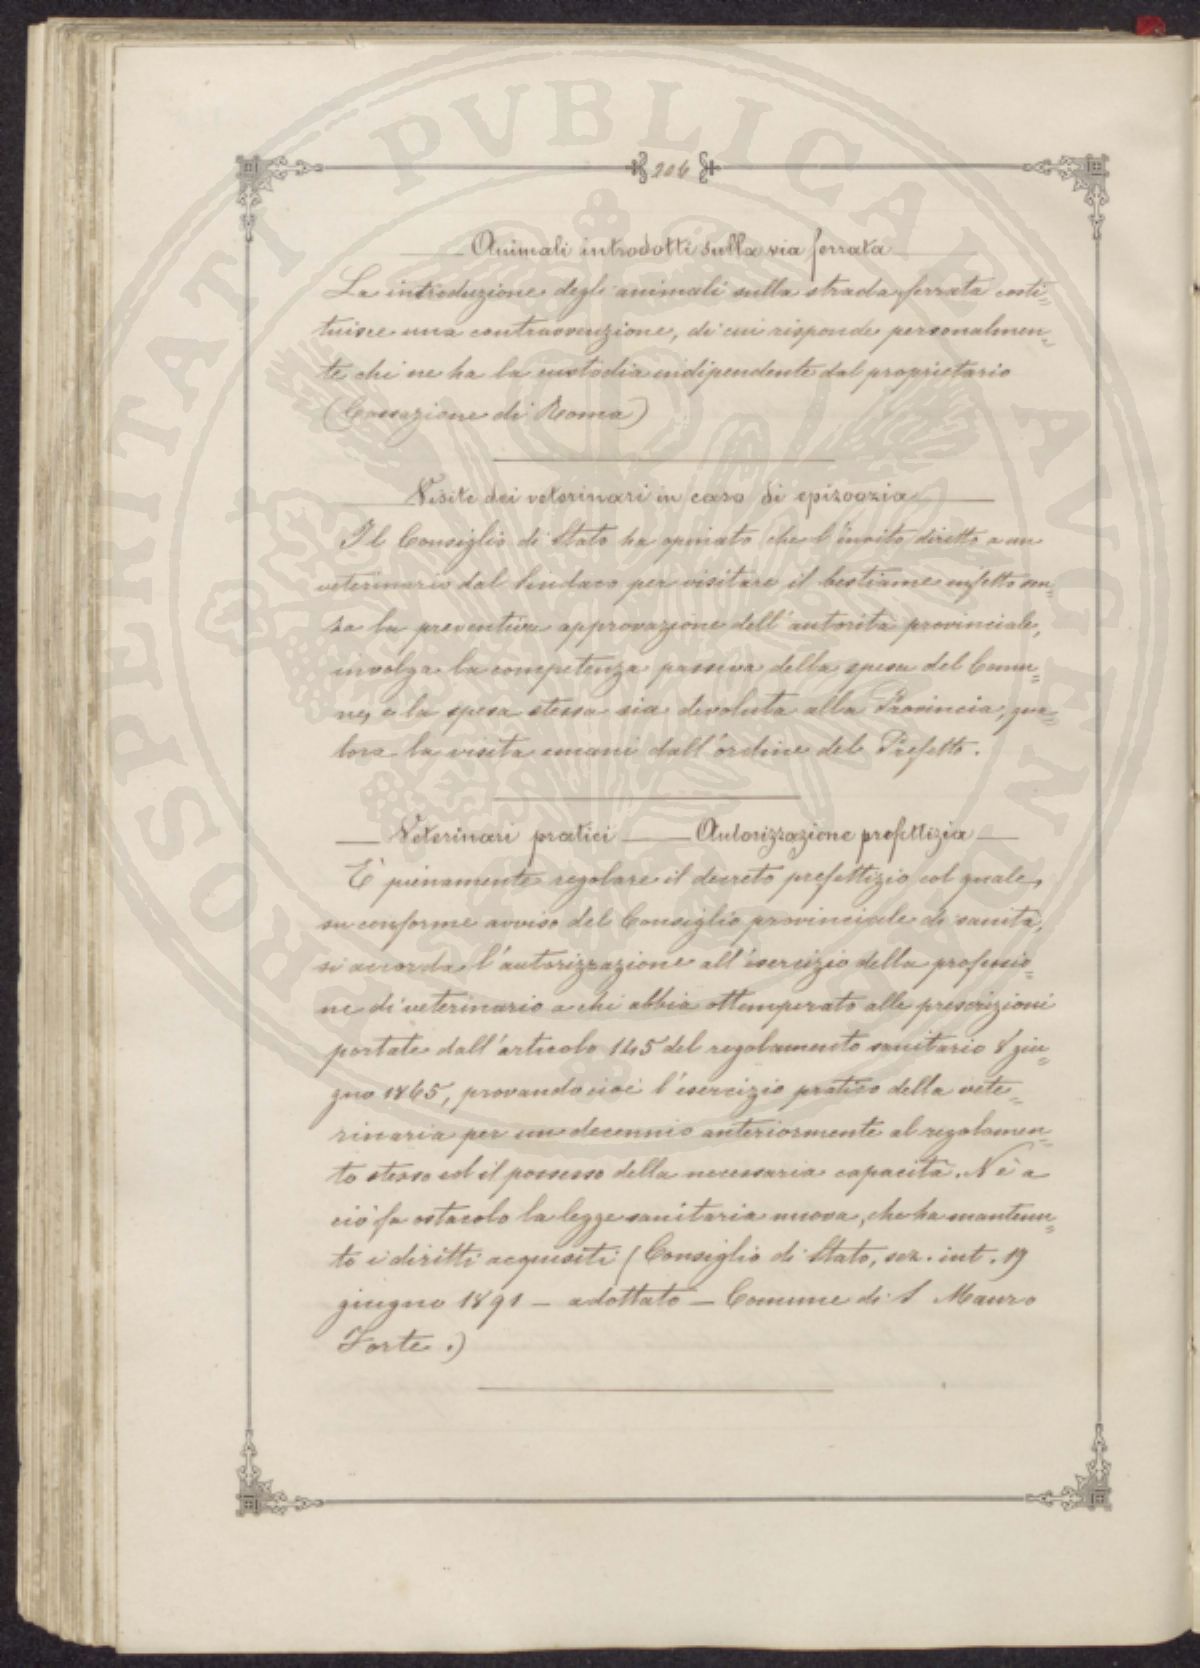 206
Animali introdotti sulla via ferrata
La introduzione degli animali sulla strada ferrata costi=
tuisce una contravvenzione, di cui risponde personalmen=
te chi ne ha la custodia indipendente dal proprietario
(Cassazione di Roma)
Visite dei veterinari in caso di epizoozia
Il Consiglio di Stato ha opinato che l'invito diretto a un
veterinario dal Sindaco per visitare il bestiame infetto sen=
za la preventiva approvazione dell'autorità provinciale,
involga la competenza passiva della spesa del Comu=
ne, e la spesa stessa sia devoluta alla Provincia, qua=
lora la visita emani dall'ordine del Prefetto.
Veterinari pratici — Autorizzazione prefettizia
È pienamente regolare il decreto prefettizio col quale,
su conforme avviso del Consiglio provinciale di sanità,
si accorda l'autorizzazione all'esercizio della professio=
ne di veterinario a chi abbia ottemperato alle prescrizioni
portate dall'articolo 145 del regolamento sanitario 8 giu=
gno 1865, provando cioè l'esercizio pratico della vete=
rinaria per un decennio anteriormente al regolamen=
to stesso ed il possesso della necessaria capacità. Nè a
ciò fa ostacolo la legge sanitaria nuova, che ha mantenu=
to i diritti acquisiti (Consiglio di Stato, sez. int. 19
giugno 1891 — adottato — Comune di S Mauro
Forte.)
PROSPERITATI PVBLICAE AVGENDAE